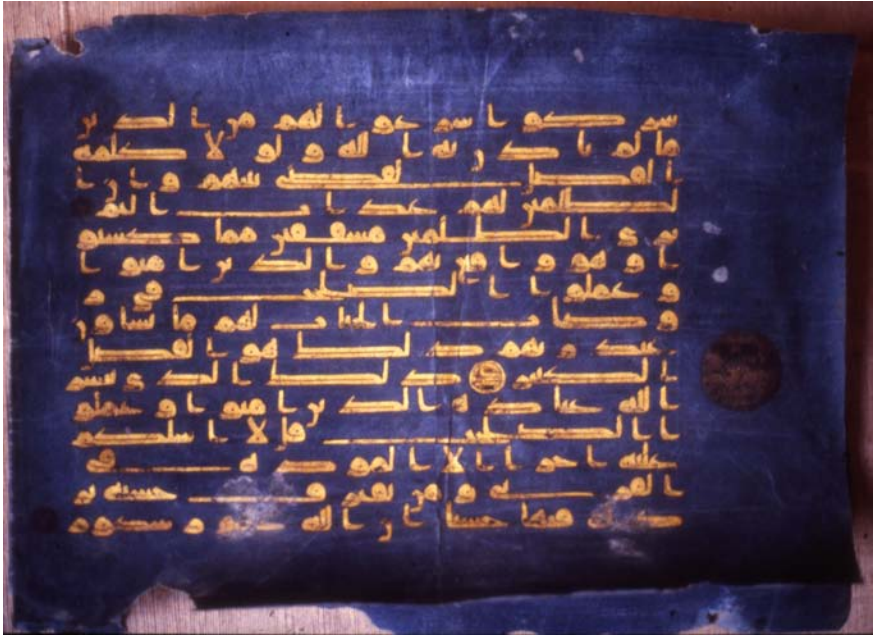 شركوا شرعوا لهم من الدين
ما لم ياذن به الله ولولا كلمه
الفصل لقضى بينهم وان ا
لظلمين لهم عذاب اليم
ترى الظلمين مشفقين مما كسبو
ا وهو واقع بهم والذين امنوا
وعملوا الصلحت في ر
وضات الجنات لهم ما يشاون
عند ربهم ذلك هو الفضل
الكبير ذلك الذى يبشر
الله عباده الذين امنوا وعملو
ا الصلحت قل لا اسلكم
عليه اجرا الا الموده في
القربى ومن يقترف حسنه نز
د له فيها حسنا ان الله غفور شكور